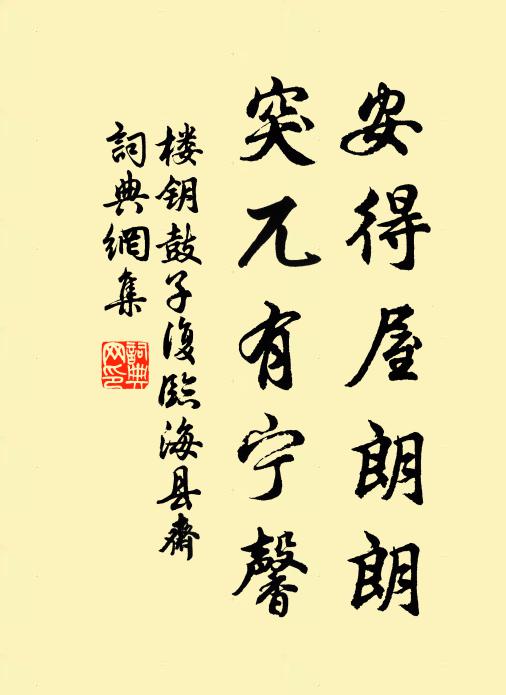 安得屋朗朗
突兀有宁馨
楼钥鼓子復臨海县齋
詞典網集
詞典网印